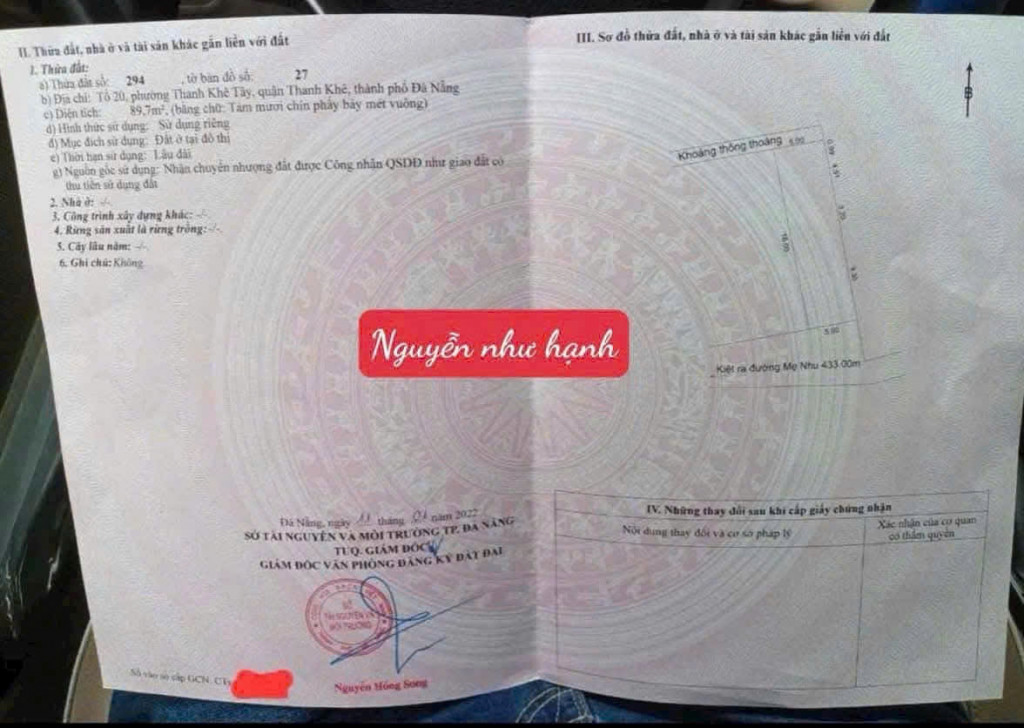 II. Thửa đất, nhà ở và tài sản khác gắn liền với đất
1. Thửa đất:
a) Thửa đất số: 294 , tờ bản đồ số: 27
b) Địa chỉ: Tổ 20, phường Thanh Khê Tây, quận Thanh Khê, thành phố Đà Nẵng
c) Diện tích: 89,7m², (bằng chữ: Tám mươi chín phẩy bảy mét vuông)
d) Hình thức sử dụng: Sử dụng riêng
đ) Mục đích sử dụng: Đất ở tại đô thị
e) Thời hạn sử dụng: Lâu dài
g) Nguồn gốc sử dụng: Nhận chuyển nhượng đất được Công nhận QSDĐ như giao đất có
thu tiền sử dụng đất
2. Nhà ở: -/-.
3. Công trình xây dựng khác: -/-.
4. Rừng sản xuất là rừng trồng:-/-.
5. Cây lâu năm: -/-.
6. Ghi chú: Không
Nguyễn như hạnh
Đà Nẵng, ngày 11 tháng 01 năm 2022
SỞ TÀI NGUYÊN VÀ MÔI TRƯỜNG TP. ĐÀ NẴNG
TUQ. GIÁM ĐỐC
GIÁM ĐỐC VĂN PHÒNG ĐĂNG KÝ ĐẤT ĐAI
SỞ
TÀI NGUYÊN VÀ
MÔI TRƯỜNG
Nguyễn Hồng Song
Số vào sổ cấp GCN: CTs
III. Sơ đồ thửa đất, nhà ở và tài sản khác gắn liền với đất
B
Khoảng thông thoáng
5.00
Kiệt ra đường Mẹ Nhu 433.00m
IV. Những thay đổi sau khi cấp giấy chứng nhận
Nội dung thay đổi và cơ sở pháp lý
Xác nhận của cơ quan
có thẩm quyền